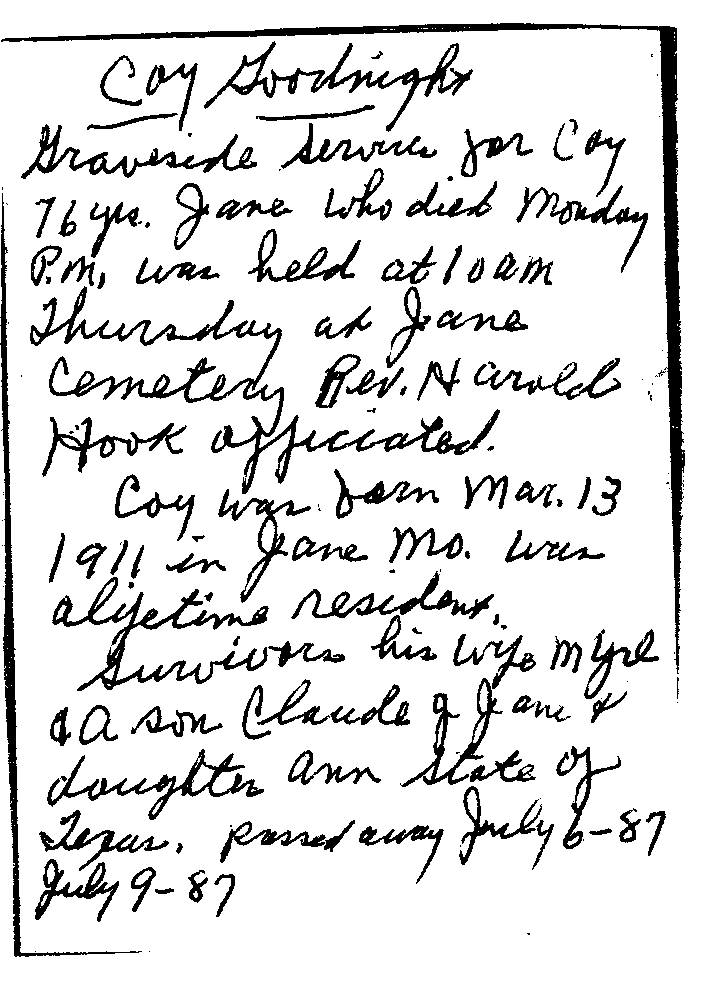 Coy Goodnight
Graveside Services for Coy
76 yrs. Jane who died Monday
P.m, was held at 10 am
Thursday at Jane
Cemetery Rev. Harold
Hook officiated.
Coy was born Mar. 13
1911 in Jane Mo. was
a lifetime resident.
Survivors his wife Myrl
& A son Claude of Jane &
daughter Ann State of
Texas. passed away July 6-87
July 9-87